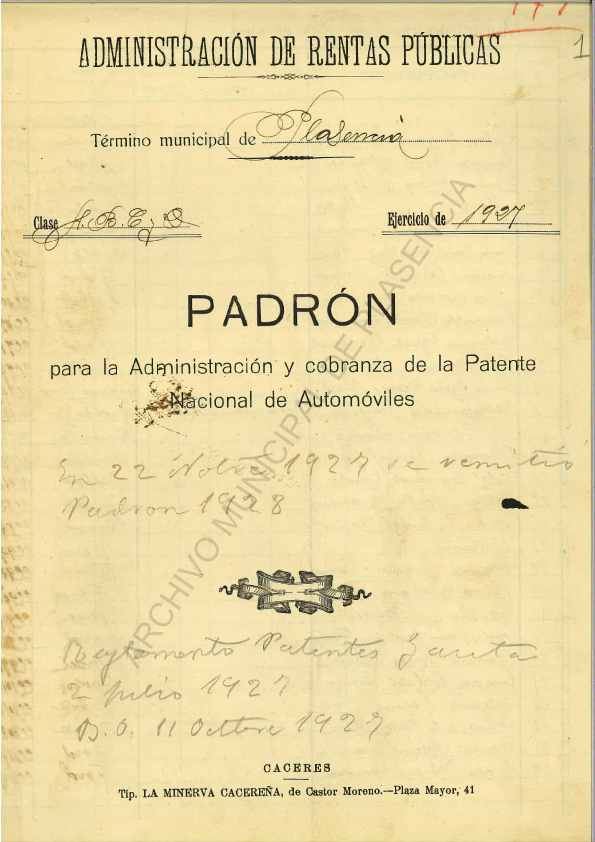 1
ADMINISTRACIÓN DE RENTAS PÚBLICAS
Término municipal de Plasencia
Clase A. B. C. y D
Ejercicio de 1927
PADRÓN
para la Administración y cobranza de la Patente
Nacional de Automóviles
En 22 Novbre 1927 se remitió
Padron 1928
Reglamento Patentes Gaceta
2 julio 1927
B.O. 11 Octbre 1927
CACERES
Tip. LA MINERVA CACEREÑA, de Castor Moreno.—Plaza Mayor, 41
ARCHIVO MUNICIPAL DE PLASENCIA